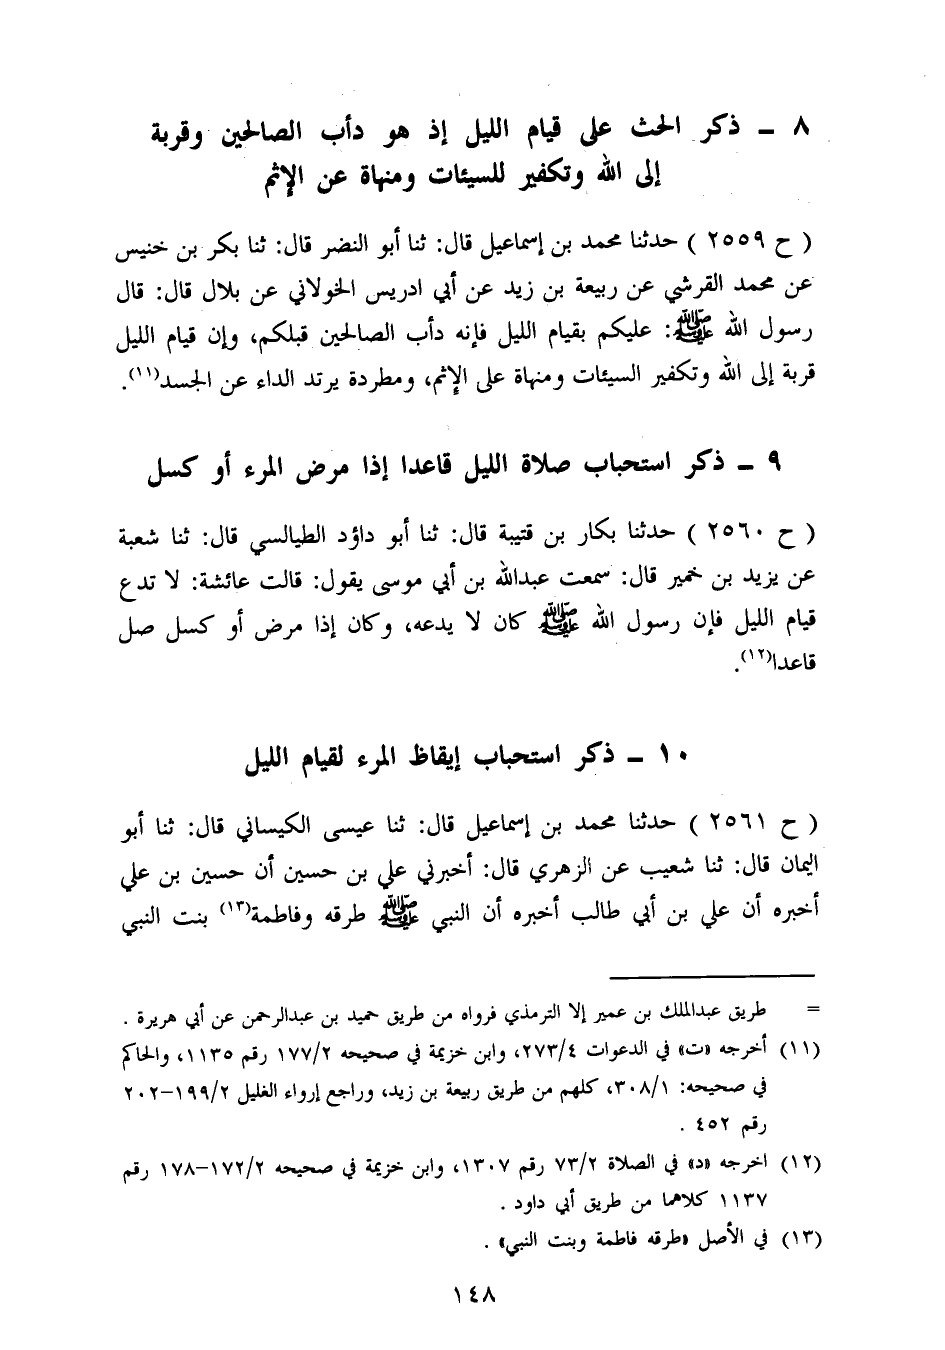 ٨ ــ ذكر الحث على قيام الليل إذ هو دأب الصالحين وقربة
إلى الله وتكفير للسيئات ومنهاة عن الإثم
( ح ٢٥٥٩ ) حدثنا محمد بن إسماعيل قال: ثنا أبو النضر قال: ثنا بكر بن خنيس
عن محمد القرشي عن ربيعة بن زيد عن أبي ادريس الخولاني عن بلال قال: قال
رسول الله ﷺ: عليكم بقيام الليل فإنه دأب الصالحين قبلكم، وإن قيام الليل
قربة إلى الله وتكفير السيئات ومنهاة على الإثم، ومطردة يرتد الداء عن الجسد(١١).
٩ ــ ذكر استحباب صلاة الليل قاعدا إذا مرض المرء أو كسل
( ح ٢٥٦٠ ) حدثنا بكار بن قتيبة قال: ثنا أبو داؤد الطيالسي قال: ثنا شعبة
عن يزيد بن خمير قال: سمعت عبدالله بن أبي موسى يقول: قالت عائشة: لا تدع
قيام الليل فإن رسول الله ﷺ كان لا يدعه، وكان إذا مرض أو كسل صل
قاعدا(١٢).
١٠ ــ ذكر استحباب إيقاظ المرء لقيام الليل
( ح ٢٥٦١ ) حدثنا محمد بن إسماعيل قال: ثنا عيسى الكيساني قال: ثنا أبو
اليمان قال: ثنا شعيب عن الزهري قال: أخبرني علي بن حسين أن حسين بن علي
أخبره أن علي بن أبي طالب أخبره أن النبي ﷺ طرقه وفاطمة(١٣) بنت النبي
= طريق عبدالملك بن عمير إلا الترمذي فرواه من طريق حميد بن عبدالرحمن عن أبي هريرة .
(١١) أخرجه «ت» في الدعوات ٢٧٣/٤، وابن خزيمة في صحيحه ١٧٧/٢ رقم ١١٣٥، والحاكم
في صحيحه: ٣٠٨/١، كلهم من طريق ربيعة بن زيد، وراجع إرواء الغليل ١٩٩/٢–٢٠٢
رقم ٤٥٢ .
(١٢) اخرجه «د» في الصلاة ٧٣/٢ رقم ١٣٠٧، وابن خزيمة في صحيحه ١٧٢/٢–١٧٨ رقم
١١٣٧ كلاهما من طريق أبي داود .
(١٣) في الأصل «طرقه فاطمة وبنت النبي» .
١٤٨